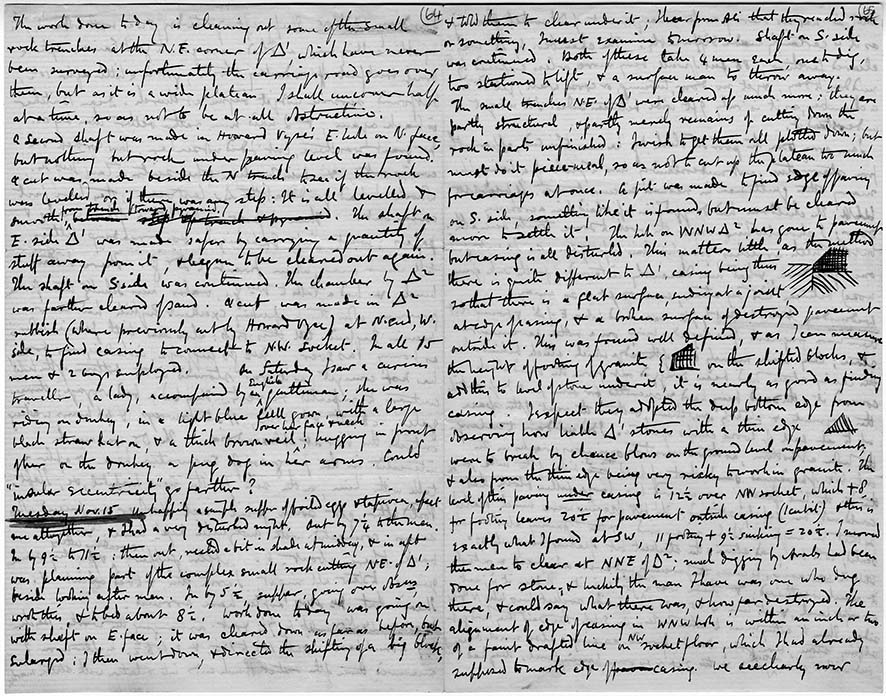 (64)
The work done to day is cleaning out some of the small
rock trenches at the N.E. corner of Δ' which have never
been surveyed; unfortunately the carriage road goes over
them, but as it is a wide plateau I shall uncover half
at a time, so as not to be at all obstructive.
A second shaft was made in Howard Vyse's E. hole on N. face,
but nothing but rock under paving level was found.
A cut was made beside the N trench to see if the rock
was levelled or if there was any step: it is all levelled &
smooth from trench toward pyramid. The shaft on
E. side Δ' was made safer by carrying a quantity of
stuff away from it, & begun to be cleared out again.
The shaft on S side was continued. The chamber by Δ²
was further cleared of sand. A cut was made in Δ²
rubbish (where previously cut by Howard Vyse) at N. end, W.
side, to find casing to connect to N.W. socket. In all 15
men & 2 boys employed. On Saturday I saw a curious
traveller, a lady, accompanied by English gentleman; she was
riding on donkey, in a light blue gown, with a large
black straw hat on, & a thick brown veil over her face & neck; hugging in front
of her on the donkey a pug dog in her arms. Could
"insular eccentricity" go farther?
Tuesday Nov. 15 Unhappily a simple supper of boiled eggs & tapioca, upset
me altogether, & I had a very disturbed night. Out by 7¼ to the men.
In by 9½ to 11½; then out, rested a bit in shade at midday, & in aft
was planning part of the complex small rock cutting N.E. of Δ';
beside looking after men. In by 5½ supper, going over obsns
wrote this, & to bed about 8½. Work done to day was going on
with shaft on E. face; it was cleared down as far as before, but
enlarged; I then went down, & directed the shifting of a big block,
(65)
& told them to clear under it; I hear from Ali that they reached rock
or something, I must examine tomorrow. Shaft on S. side
was continued. Both of these take 4 men each, one to dig,
two stationed to lift, & a surface man to throw away.
The small trenches N.E. of Δ' were cleared of much more; they are
partly structural, & partly merely remains of cutting down the
rock in parts unfinished: I wish to get them all plotted down; but
must do it piece-meal, so as not to cut up the plateau too much
for carriages at once. A pit was made to find edge of paving
on S. side something like it is found but must be cleared
more to settle it. The hole on WNW Δ² has gone to pavement
but casing is all disturbed. This matters little as the method
there is quite different to Δ', casing being thus
so that there is a flat surface, ending at a joint
at edge of casing, & a broken surface of destroyed pavement
outside it. This was found well defined, & as I can measure
the height of footing of granite on the shifted blocks, &
add this to level of stone under it, it is nearly as good as finding
casing. I expect they adopted the deep bottom edge from
observing how liable Δ' stones with a thin edge
were to break by chance blows on the ground level or pavement,
& also from the thin edge being very risky to work in granite. The
level of the paving under casing is 12½ over NW socket, which + 8
for footing leaves 20½ for pavement outside casing (1 cubit) & this is
exactly what I found at SW, 11 footing + 9½ sinking = 20½. I moved
the men to clear at NNE of Δ²; much digging by Arabs had been
done for stone, & luckily the man I have was one who dug
there, & could say what there was, & how far destroyed. The
alignment of edge of casing in WNW hole is within an inch or two
of a faint drafted line on NW socket floor, which I had already
supposed to mark edge of casing. We accordingly now